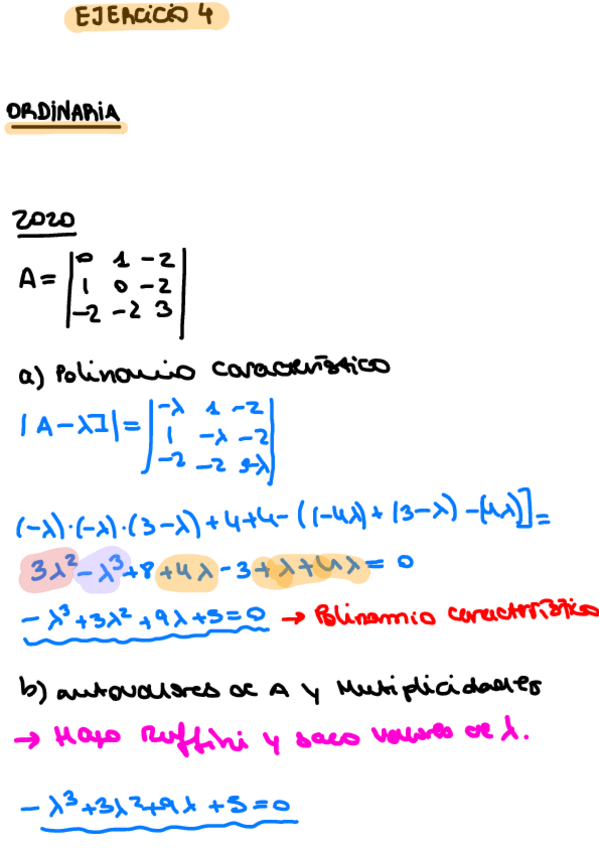 EJERCICIO 4
ORDINARIA
2020
A= |0 1 -2|
|1 0 -2|
|-2 -2 3|
a) Polinomio característico
|A-λI|= |-λ 1 -2|
|1 -λ -2|
|-2 -2 3-λ|
(-λ)·(-λ)·(3-λ)+4+4-((-4λ)+(3-λ)-(4λ)]=
3λ²-λ³+8+4λ-3+λ+4λ=0
-λ³+3λ²+9λ+5=0 → Polinomio característico
b) autovalores de A y Multiplicidades
→ Hago Ruffini y saco valores de λ.
-λ³+3λ²+9λ+5=0